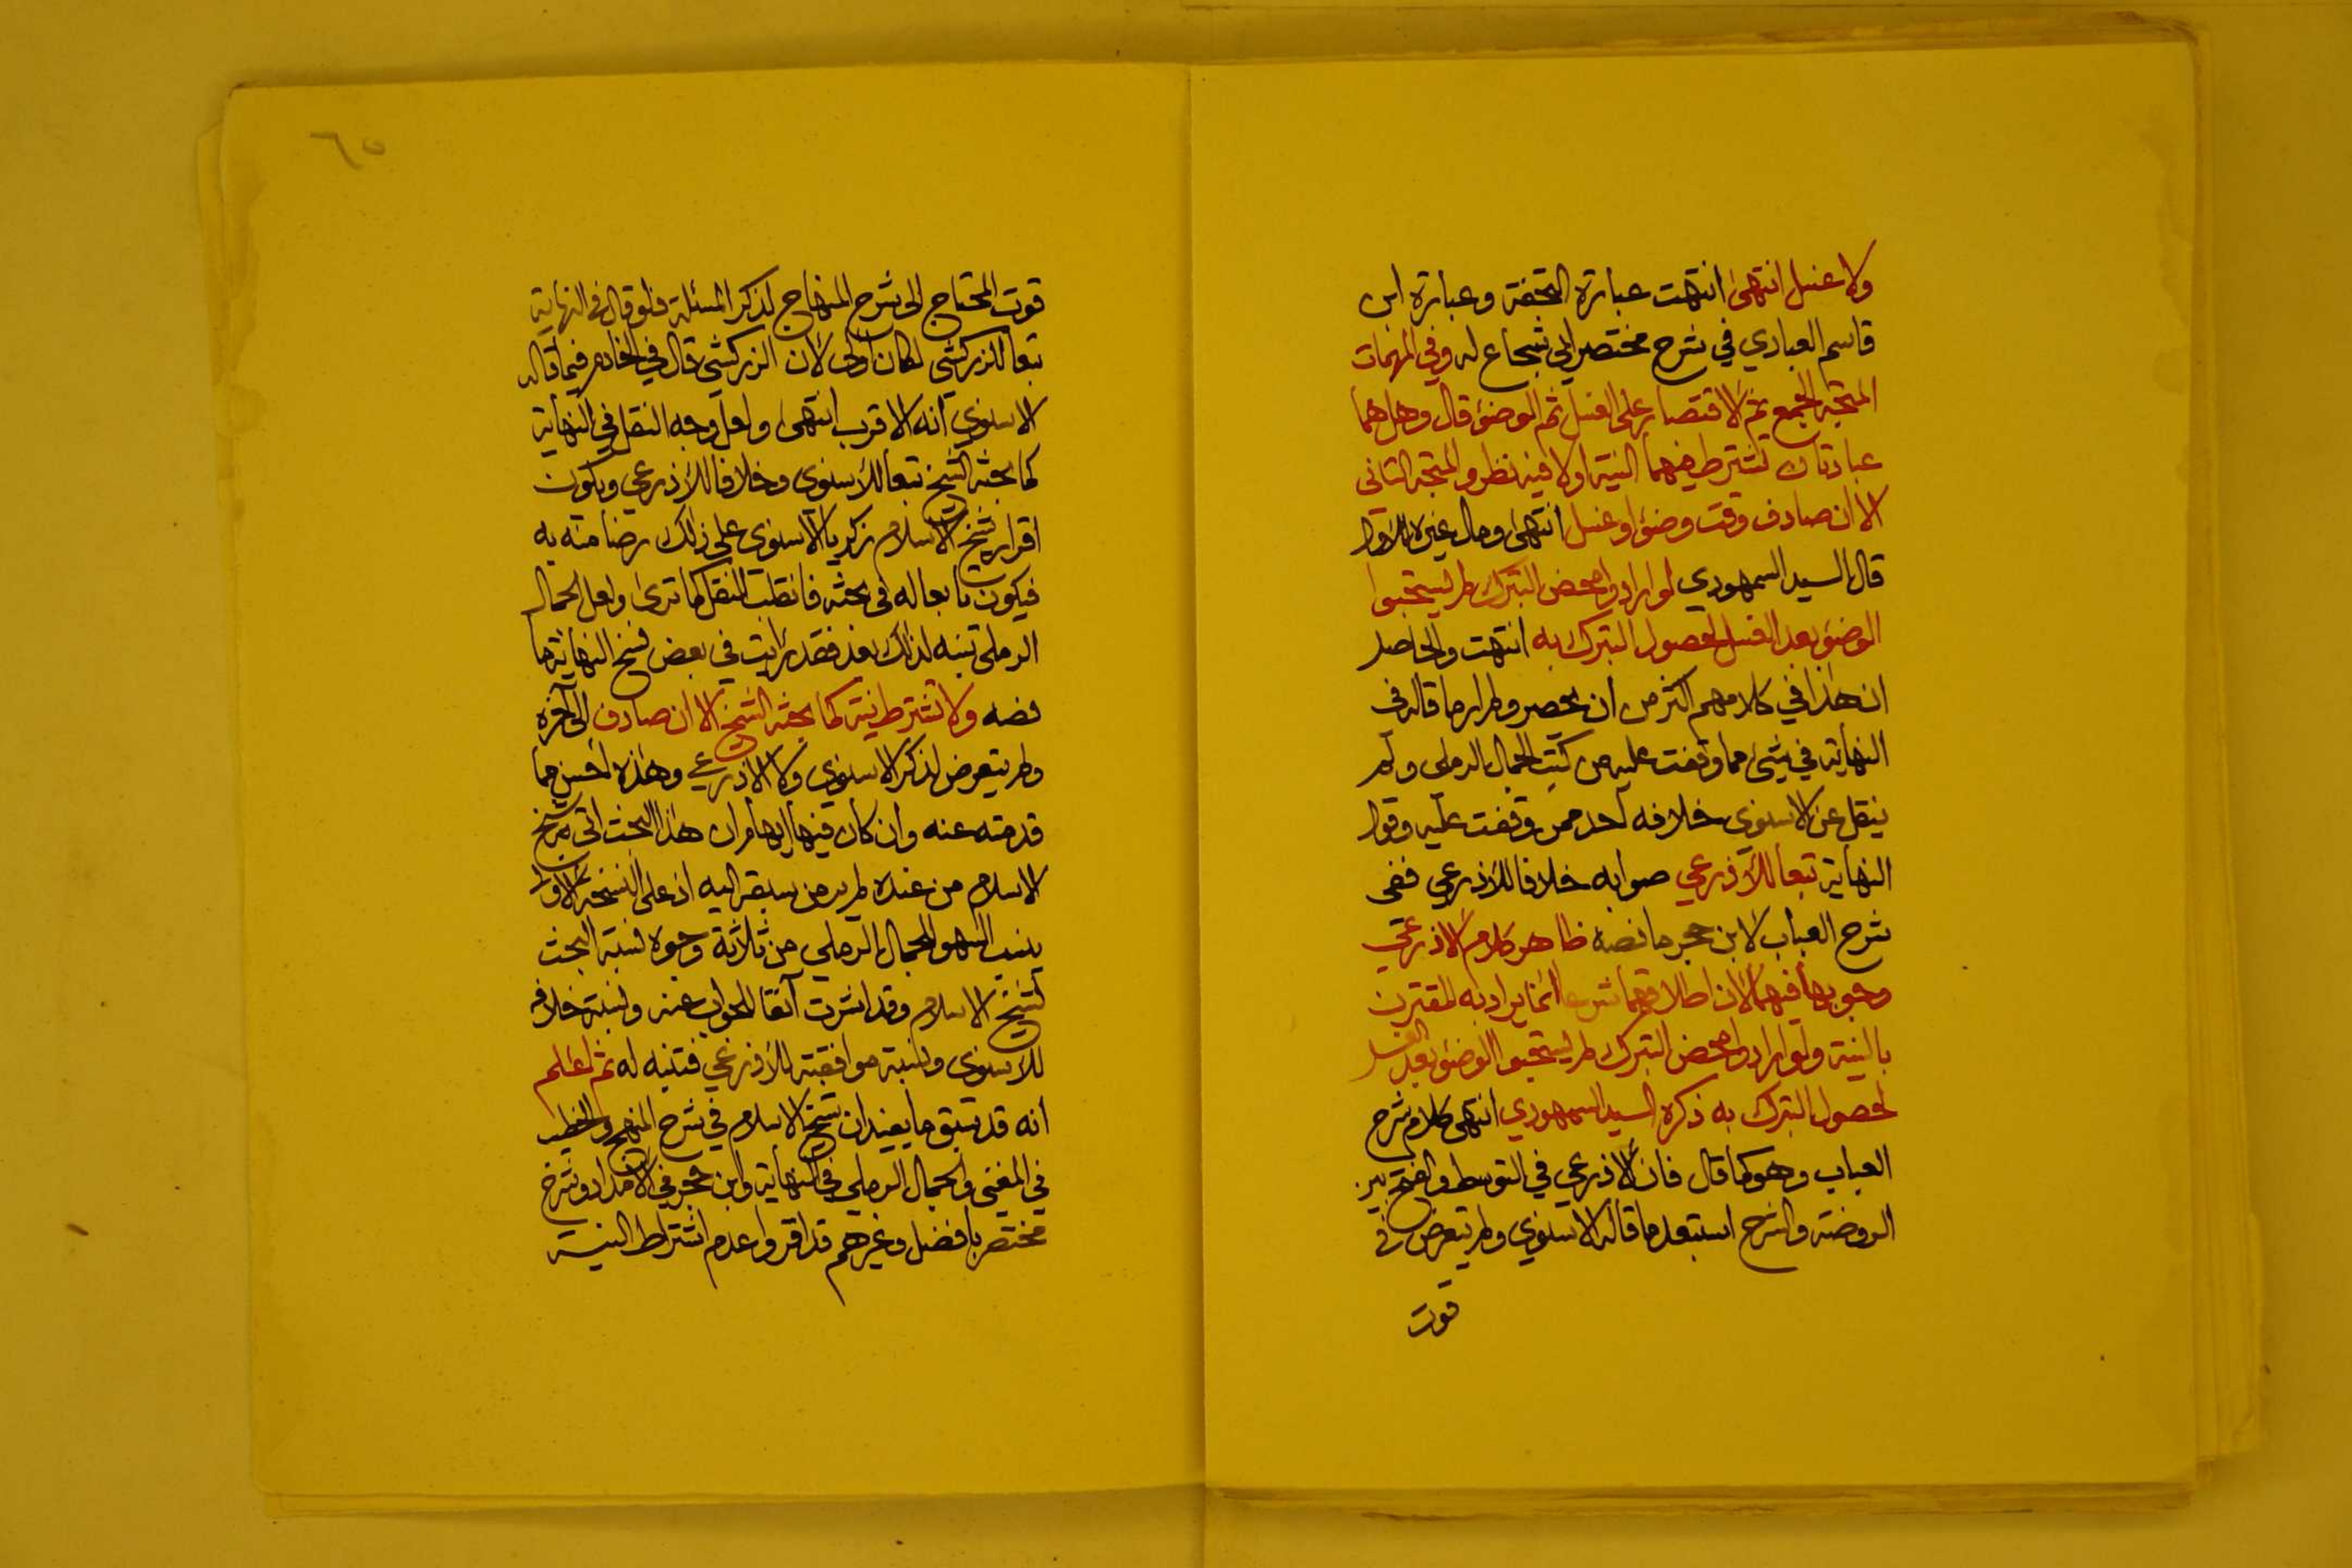 ولا غسل انتهى انتهت عبارة التحفة وعبارة ابن
قاسم العبادي في شرح مختصر ابي شجاع له وفي المهمات
المتجه الجمع ثم الاقتصار على الغسل ثم الوضؤ قال وهل هما
عبادتان تشترط فيهما النية اولا فيه نظر والمتجه الثاني
الا ان صادف وقت وضؤ او غسل انتهى ومال غيره للاول
قال السيد السمهودي لو ارادوا محض التبرك لم يستحبوا
الوضؤ بعد الغسل لحصول التبرك به انتهت والحاصل
ان هذا في كلامهم اكثر من ان يحصر ولم ار ما قاله في
النهاية في شيئ مما وقفت عليه من كتب الجمال الرملي ولم
ينقل عن الاسنوي خلافه احد ممن وقفت عليه وقول
النهاية تبعا للاذرعي صوابه خلافا للاذرعي ففي
شرح العباب لابن حجر ما نصه ظاهر كلام الاذرعي
وجوبها فيهما لان اطلاقهما شرعا انما يراد به المقترن
بالنية ولو ارادوا محض التبرك لم يستحبوا الوضؤ بعد الغسل
لحصول التبرك به ذكره السيد السمهودي انتهى كلام شرح
العباب وهو كما قال فان الاذرعي في التوسط والفتح بين
الروضة والشرح استبعد ما قاله الاسنوي ولم يتعرض في
قوت
٦٥
قوت المحتاج الى شرح المنهاج لذكر المسئلة فلو قال في النهاية
تبعا للزركشي لكان اولى لان الزركشي قال في الخادم فيما قاله
الاسنوي انه الاقرب انتهى ولعل وجه النقل في النهاية
كما بحثه الشيخ تبعا للاسنوي وخلافا للاذرعي ويكون
اقرار شيخ الاسلام زكريا الاسنوي على ذلك رضا منه به
فيكون تابعا له في بحثه فانقلب النقل كما ترى ولعل الجمال
الرملي تنبه لذلك بعد فقد رايت في بعض نسخ النهاية ما
نصه ولا تشترط نية كما بحثه الشيخ الا ان صادف الى آخره
ولم يتعرض لذكر الاسنوي ولا الاذرعي وهذه احسن مما
قدمته عنه وان كان فيها ايهام ان هذا البحث اتى به شيخ
الاسلام من عنده لم ير من سبقه اليه اذ على النسخة الاولى
ينسب السهو للجمال الرملي من ثلاثة وجوه نسبة البحث
لشيخ الاسلام وقد اشرت آنفا للجواب عنه ونسبة خلافه
للاسنوي ونسبة موافقته للاذرعي فتنبه له ثم اعلم
انه قد سبق ما يفيد ان شيخ الاسلام في شرح المنهج والخطيب
في المغني والجمال الرملي في النهاية وابن حجر في الامداد وشرح
مختصر بافضل وغيرهم قد اقروا عدم اشتراط النية